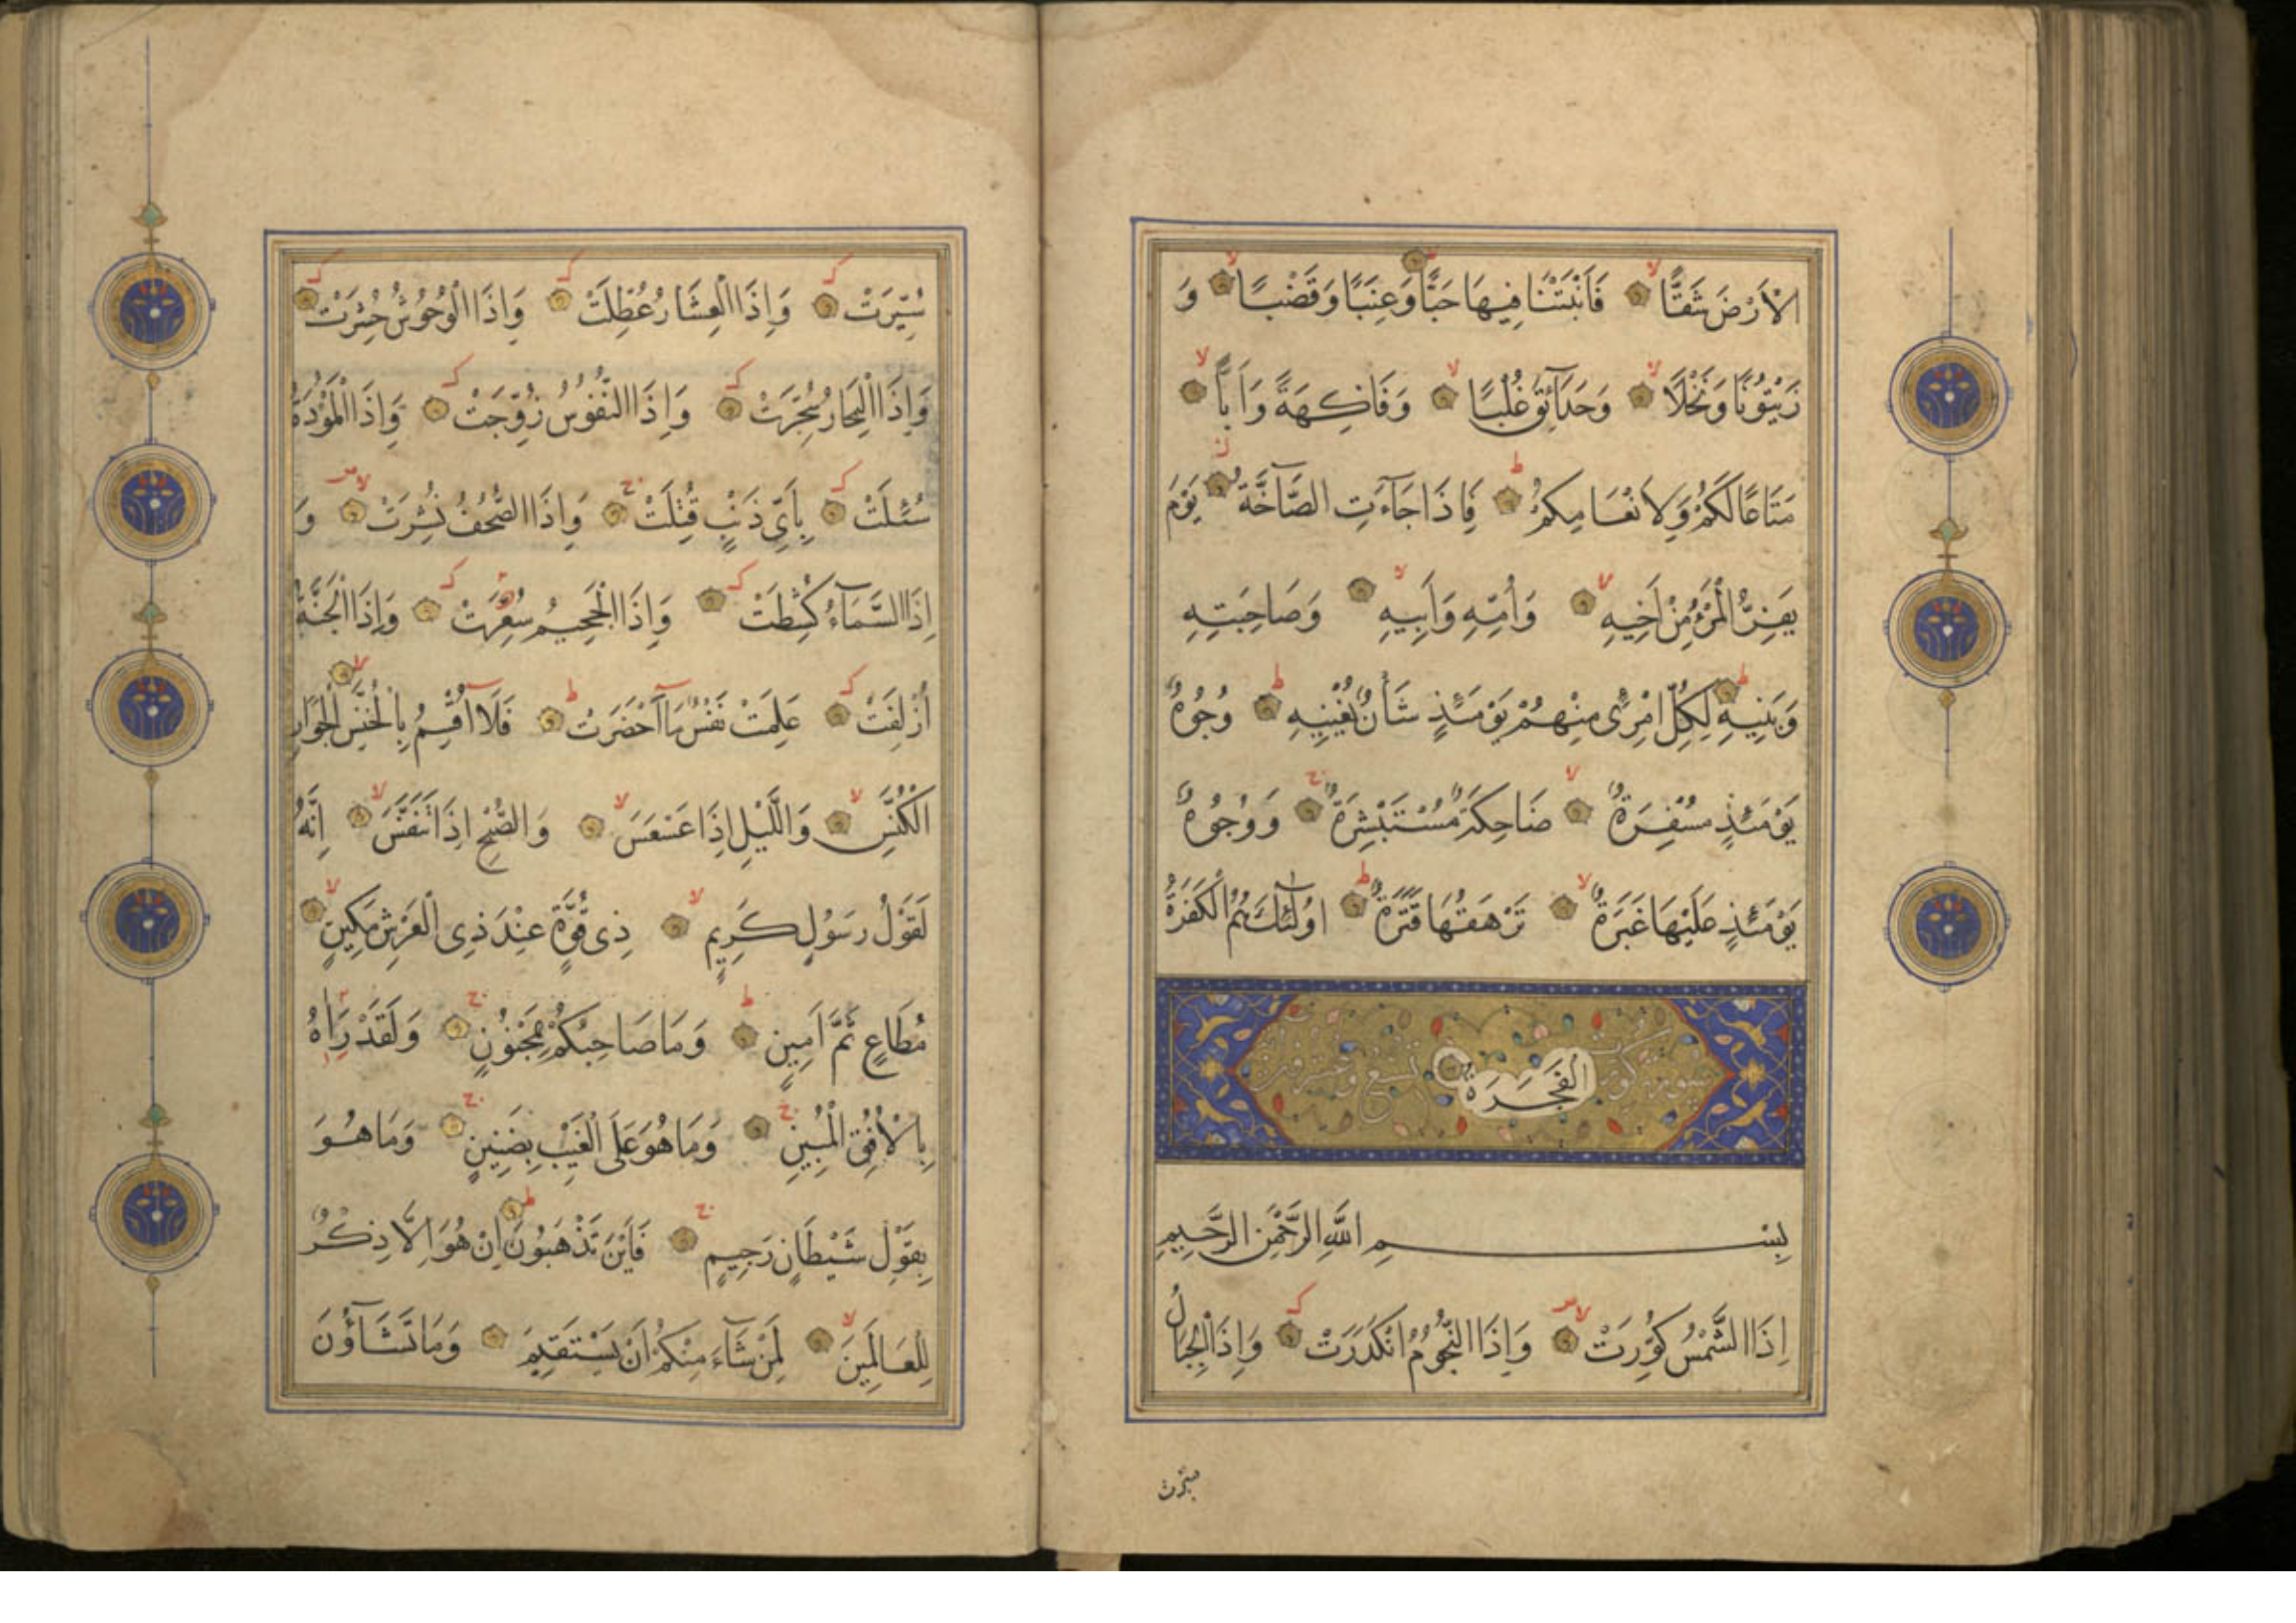 الْاَرْضَ شَقًّا فَاَنْبَتْنَا فِيهَا حَبًّا وَعِنَبًا وَقَضْبًا وَ
زَيْتُونًا وَنَخْلًا وَحَدَآئِقَ غُلْبًا وَفَاكِهَةً وَاَبًّا
مَتَاعًا لَكُمْ وَلِاَنْعَامِكُمْ فَاِذَا جَآءَتِ الصَّآخَّةُ يَوْمَ
يَفِرُّ الْمَرْءُ مِنْ اَخِيهِ وَاُمِّهِ وَاَبِيهِ وَصَاحِبَتِهِ
وَبَنِيهِ لِكُلِّ امْرِئٍ مِنْهُمْ يَوْمَئِذٍ شَأْنٌ يُغْنِيهِ وُجُوهٌ
يَوْمَئِذٍ مُسْفِرَةٌ ضَاحِكَةٌ مُسْتَبْشِرَةٌ وَوُجُوهٌ
يَوْمَئِذٍ عَلَيْهَا غَبَرَةٌ تَرْهَقُهَا قَتَرَةٌ اُولٰٓئِكَ هُمُ الْكَفَرَةُ
الْفَجَرَةُ
سورة كورت تسع وعشرون آية
بِسْمِ اللّٰهِ الرَّحْمٰنِ الرَّحِيمِ
اِذَا الشَّمْسُ كُوِّرَتْ وَاِذَا النُّجُومُ انْكَدَرَتْ وَاِذَا الْجِبَالُ
سيرت
سُيِّرَتْ وَاِذَا الْعِشَارُ عُطِّلَتْ وَاِذَا الْوُحُوشُ حُشِرَتْ
وَاِذَا الْبِحَارُ سُجِّرَتْ وَاِذَا النُّفُوسُ زُوِّجَتْ وَاِذَا الْمَوْؤُدَةُ
سُئِلَتْ بِاَىِّ ذَنْبٍ قُتِلَتْ وَاِذَا الصُّحُفُ نُشِرَتْ وَ
اِذَا السَّمَآءُ كُشِطَتْ وَاِذَا الْجَحِيمُ سُعِّرَتْ وَاِذَا الْجَنَّةُ
اُزْلِفَتْ عَلِمَتْ نَفْسٌ مَآ اَحْضَرَتْ فَلَآ اُقْسِمُ بِالْخُنَّسِ الْجَوَارِ
الْكُنَّسِ وَالَّيْلِ اِذَا عَسْعَسَ وَالصُّبْحِ اِذَا تَنَفَّسَ اِنَّهُ
لَقَوْلُ رَسُولٍ كَرِيمٍ ذِى قُوَّةٍ عِنْدَ ذِى الْعَرْشِ مَكِينٍ
مُطَاعٍ ثَمَّ اَمِينٍ وَمَا صَاحِبُكُمْ بِمَجْنُونٍ وَلَقَدْ رَاٰهُ
بِالْاُفُقِ الْمُبِينِ وَمَا هُوَ عَلَى الْغَيْبِ بِضَنِينٍ وَمَا هُوَ
بِقَوْلِ شَيْطَانٍ رَجِيمٍ فَاَيْنَ تَذْهَبُونَ اِنْ هُوَ اِلَّا ذِكْرٌ
لِلْعَالَمِينَ لِمَنْ شَآءَ مِنْكُمْ اَنْ يَسْتَقِيمَ وَمَا تَشَآؤُنَ